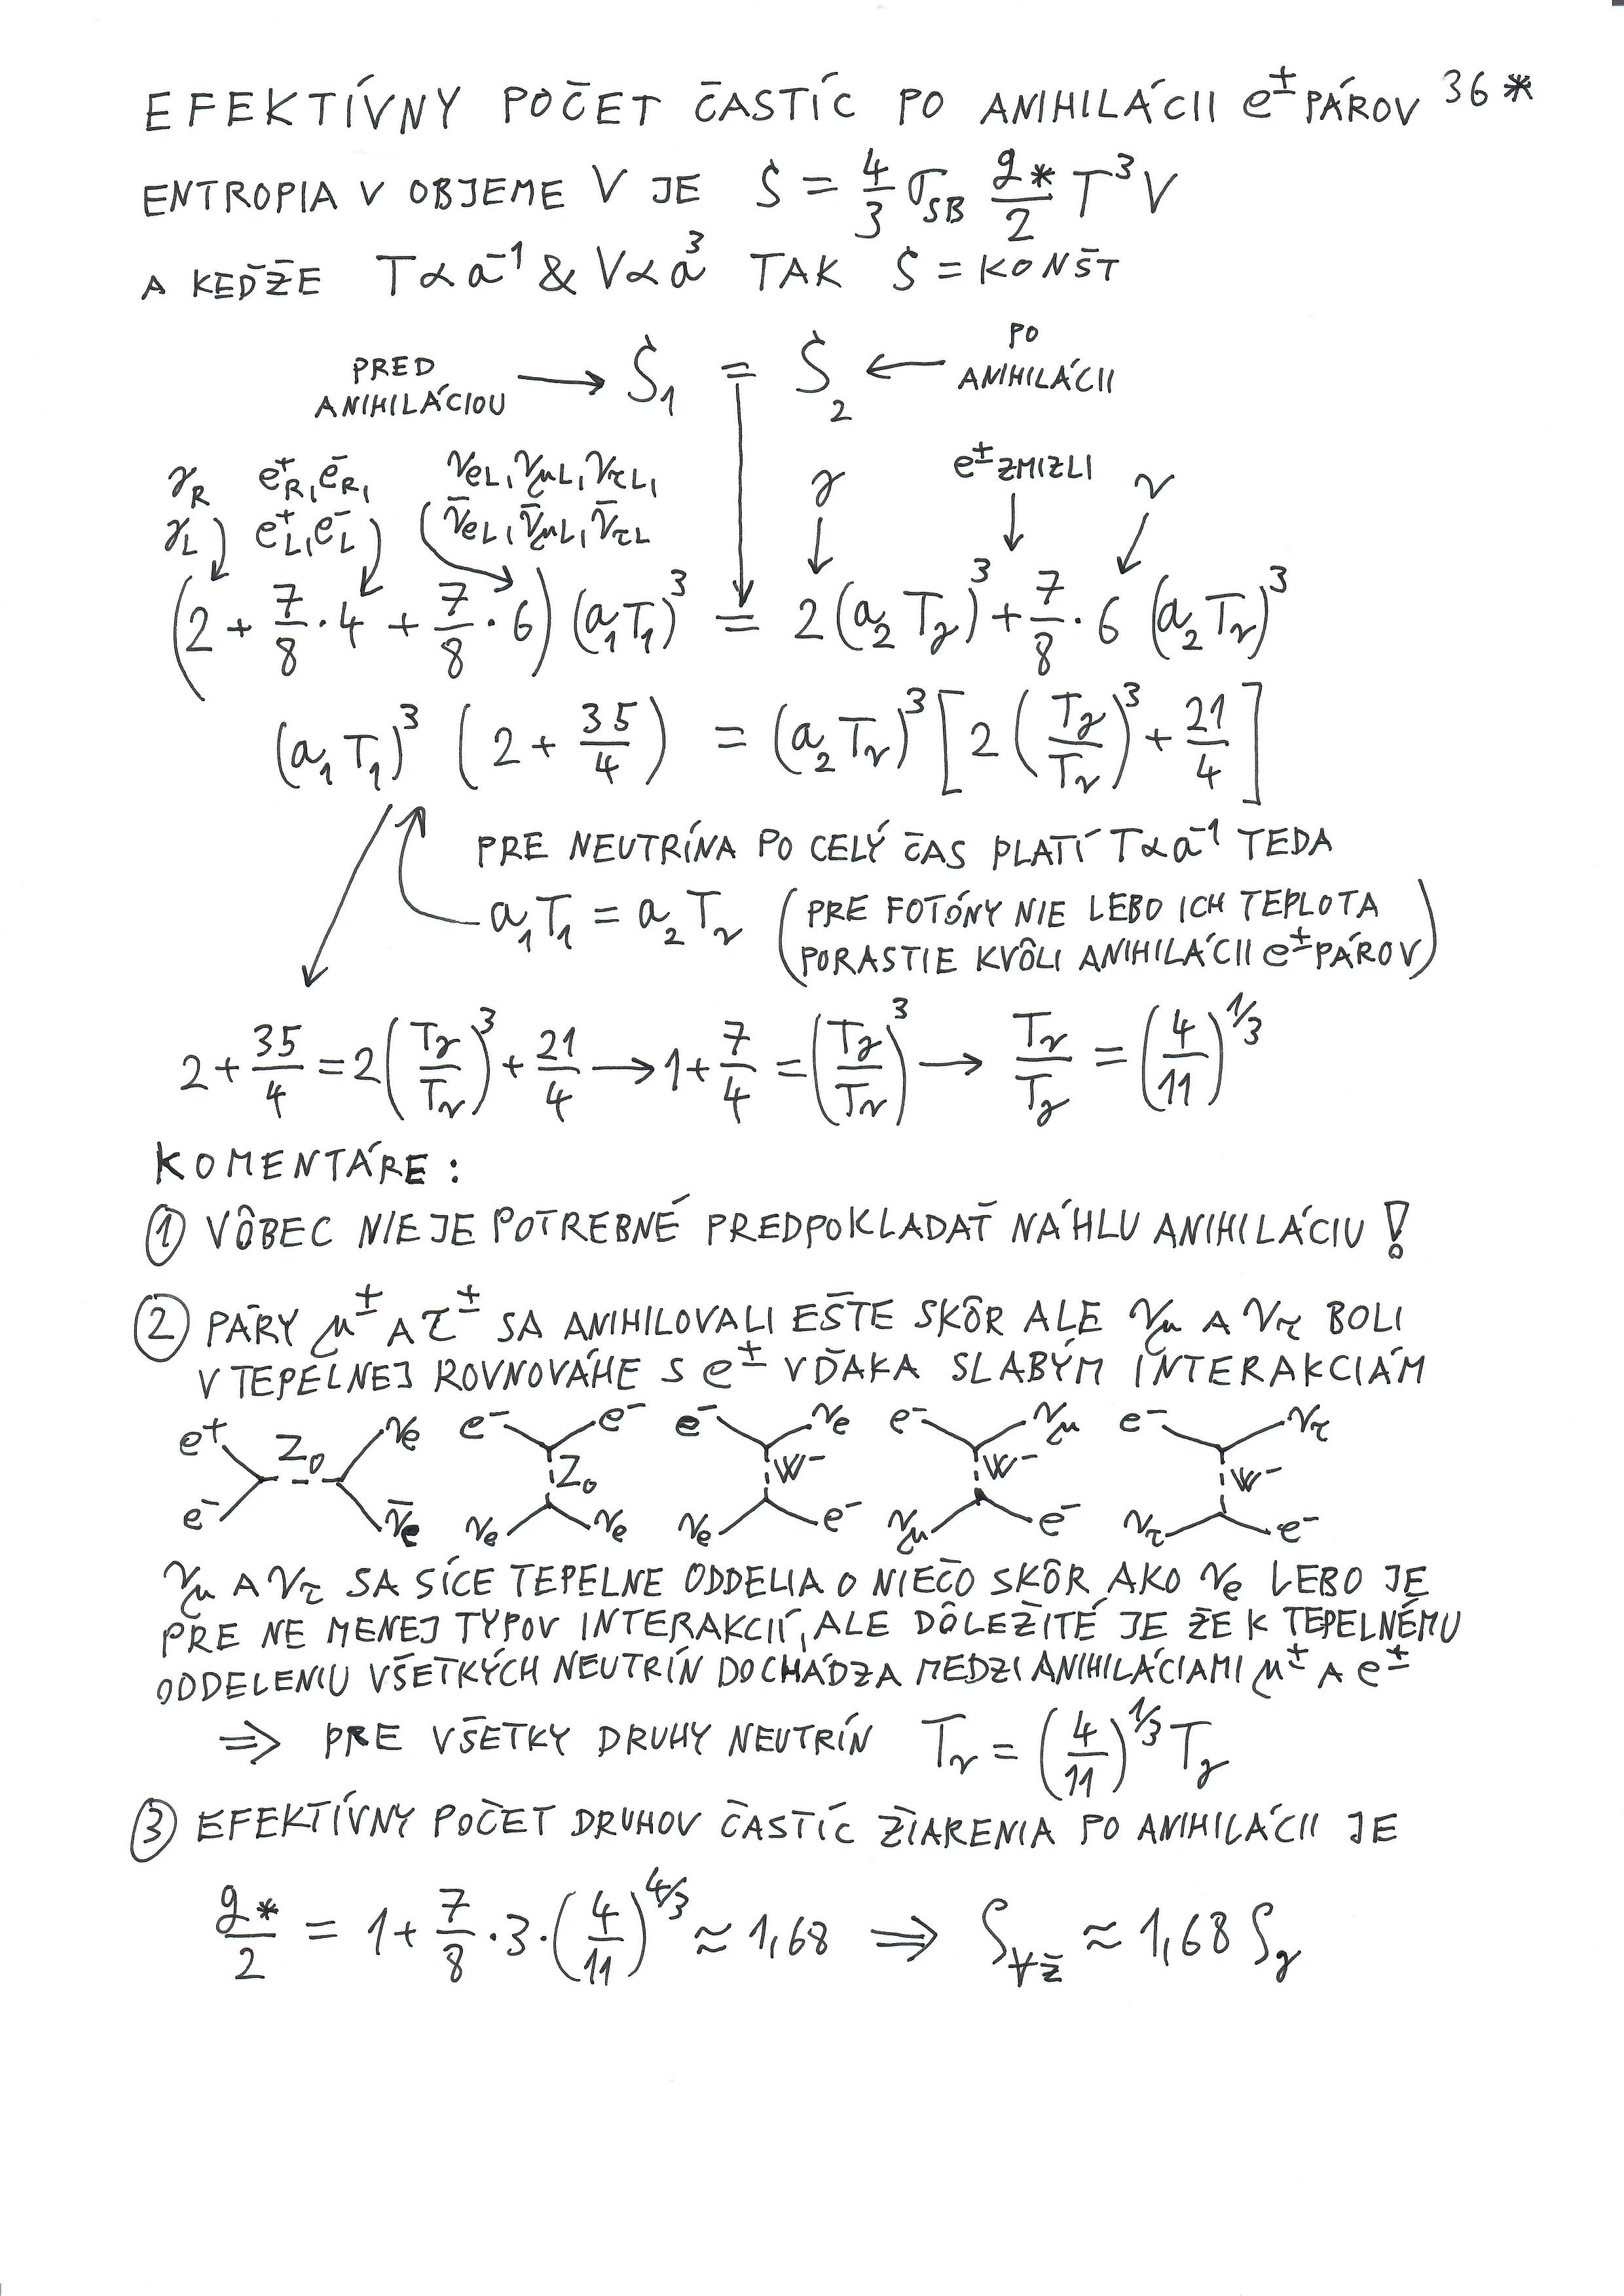 EFEKTÍVNY POČET ČASTÍC PO ANIHILÁCII e± PÁROV 36*
ENTROPIA V OBJEME V JE S = 4/3 σ_SB g*/2 T³V
A KEĎŽE T∝a⁻¹ & V∝a³ TAK S = KONŠT
PRED ANIHILÁCIOU → S₁ = S₂ ← PO ANIHILÁCII
γ_R e⁺_R, e⁻_R, ν_eL, ν_μL, ν_τL, γ e± ZMIZLI ν
γ_L e⁺_L, e⁻_L ν̄_eL, ν̄_μL, ν̄_τL
(2 + 7/8·4 + 7/8·6)(a₁T₁)³ = 2(a₂T_γ)³ + 7/8·6(a₂T_ν)³
(a₁T₁)³ (2 + 35/4) = (a₂T_ν)³ [2(T_γ/T_ν)³ + 21/4]
PRE NEUTRÍNA PO CELÝ ČAS PLATÍ T∝a⁻¹ TEDA
a₁T₁ = a₂T_ν (PRE FOTÓNY NIE LEBO ICH TEPLOTA
PORASTIE KVÔLI ANIHILÁCII e± PÁROV)
2 + 35/4 = 2(T_γ/T_ν)³ + 21/4 → 1 + 7/4 = (T_γ/T_ν)³ → T_ν/T_γ = (4/11)^1/3
KOMENTÁRE:
① VÔBEC NIE JE POTREBNÉ PREDPOKLADAŤ NÁHLU ANIHILÁCIU!
② PÁRY μ± A τ± SA ANIHILOVALI EŠTE SKÔR ALE ν_μ A ν_τ BOLI
V TEPELNEJ ROVNOVÁHE S e± VĎAKA SLABÝM INTERAKCIÁM
e⁺ Z₀ ν_e e⁻ e⁻ e⁻ ν_e e⁻ ν_μ e⁻ ν_τ
Z₀ W⁻ W⁻ W⁻
e⁻ ν̄_e ν_e ν_e ν_e e⁻ ν_μ e⁻ ν_τ e⁻
ν_μ A ν_τ SA SÍCE TEPELNE ODDELIA O NIEČO SKÔR AKO ν_e LEBO JE
PRE NE MENEJ TYPOV INTERAKCIÍ, ALE DÔLEŽITÉ JE ŽE K TEPELNÉMU
ODDELENIU VŠETKÝCH NEUTRÍN DOCHÁDZA MEDZI ANIHILÁCIAMI μ± A e±
⇒ PRE VŠETKY DRUHY NEUTRÍN T_ν = (4/11)^1/3 T_γ
③ EFEKTÍVNY POČET DRUHOV ČASTÍC ŽIARENIA PO ANIHILÁCII JE
g*/2 = 1 + 7/8·3·(4/11)^4/3 ≈ 1,68 ⇒ ρ_∀ž ≈ 1,68 ρ_γ